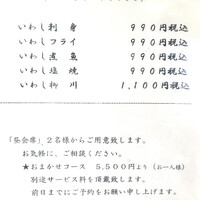 いわし刺身 990円税込
いわしフライ 990円税込
いわし煮魚 990円税込
いわし塩焼 990円税込
いわし柳川 1,100円税込
「昼会席」2名様からご用意致します。
お気軽に、ご相談ください。
★おまかせコース 5,500円より(お一人様)
別途サービス料を頂戴致します。
前日までにご予約をお願い申し上げます。